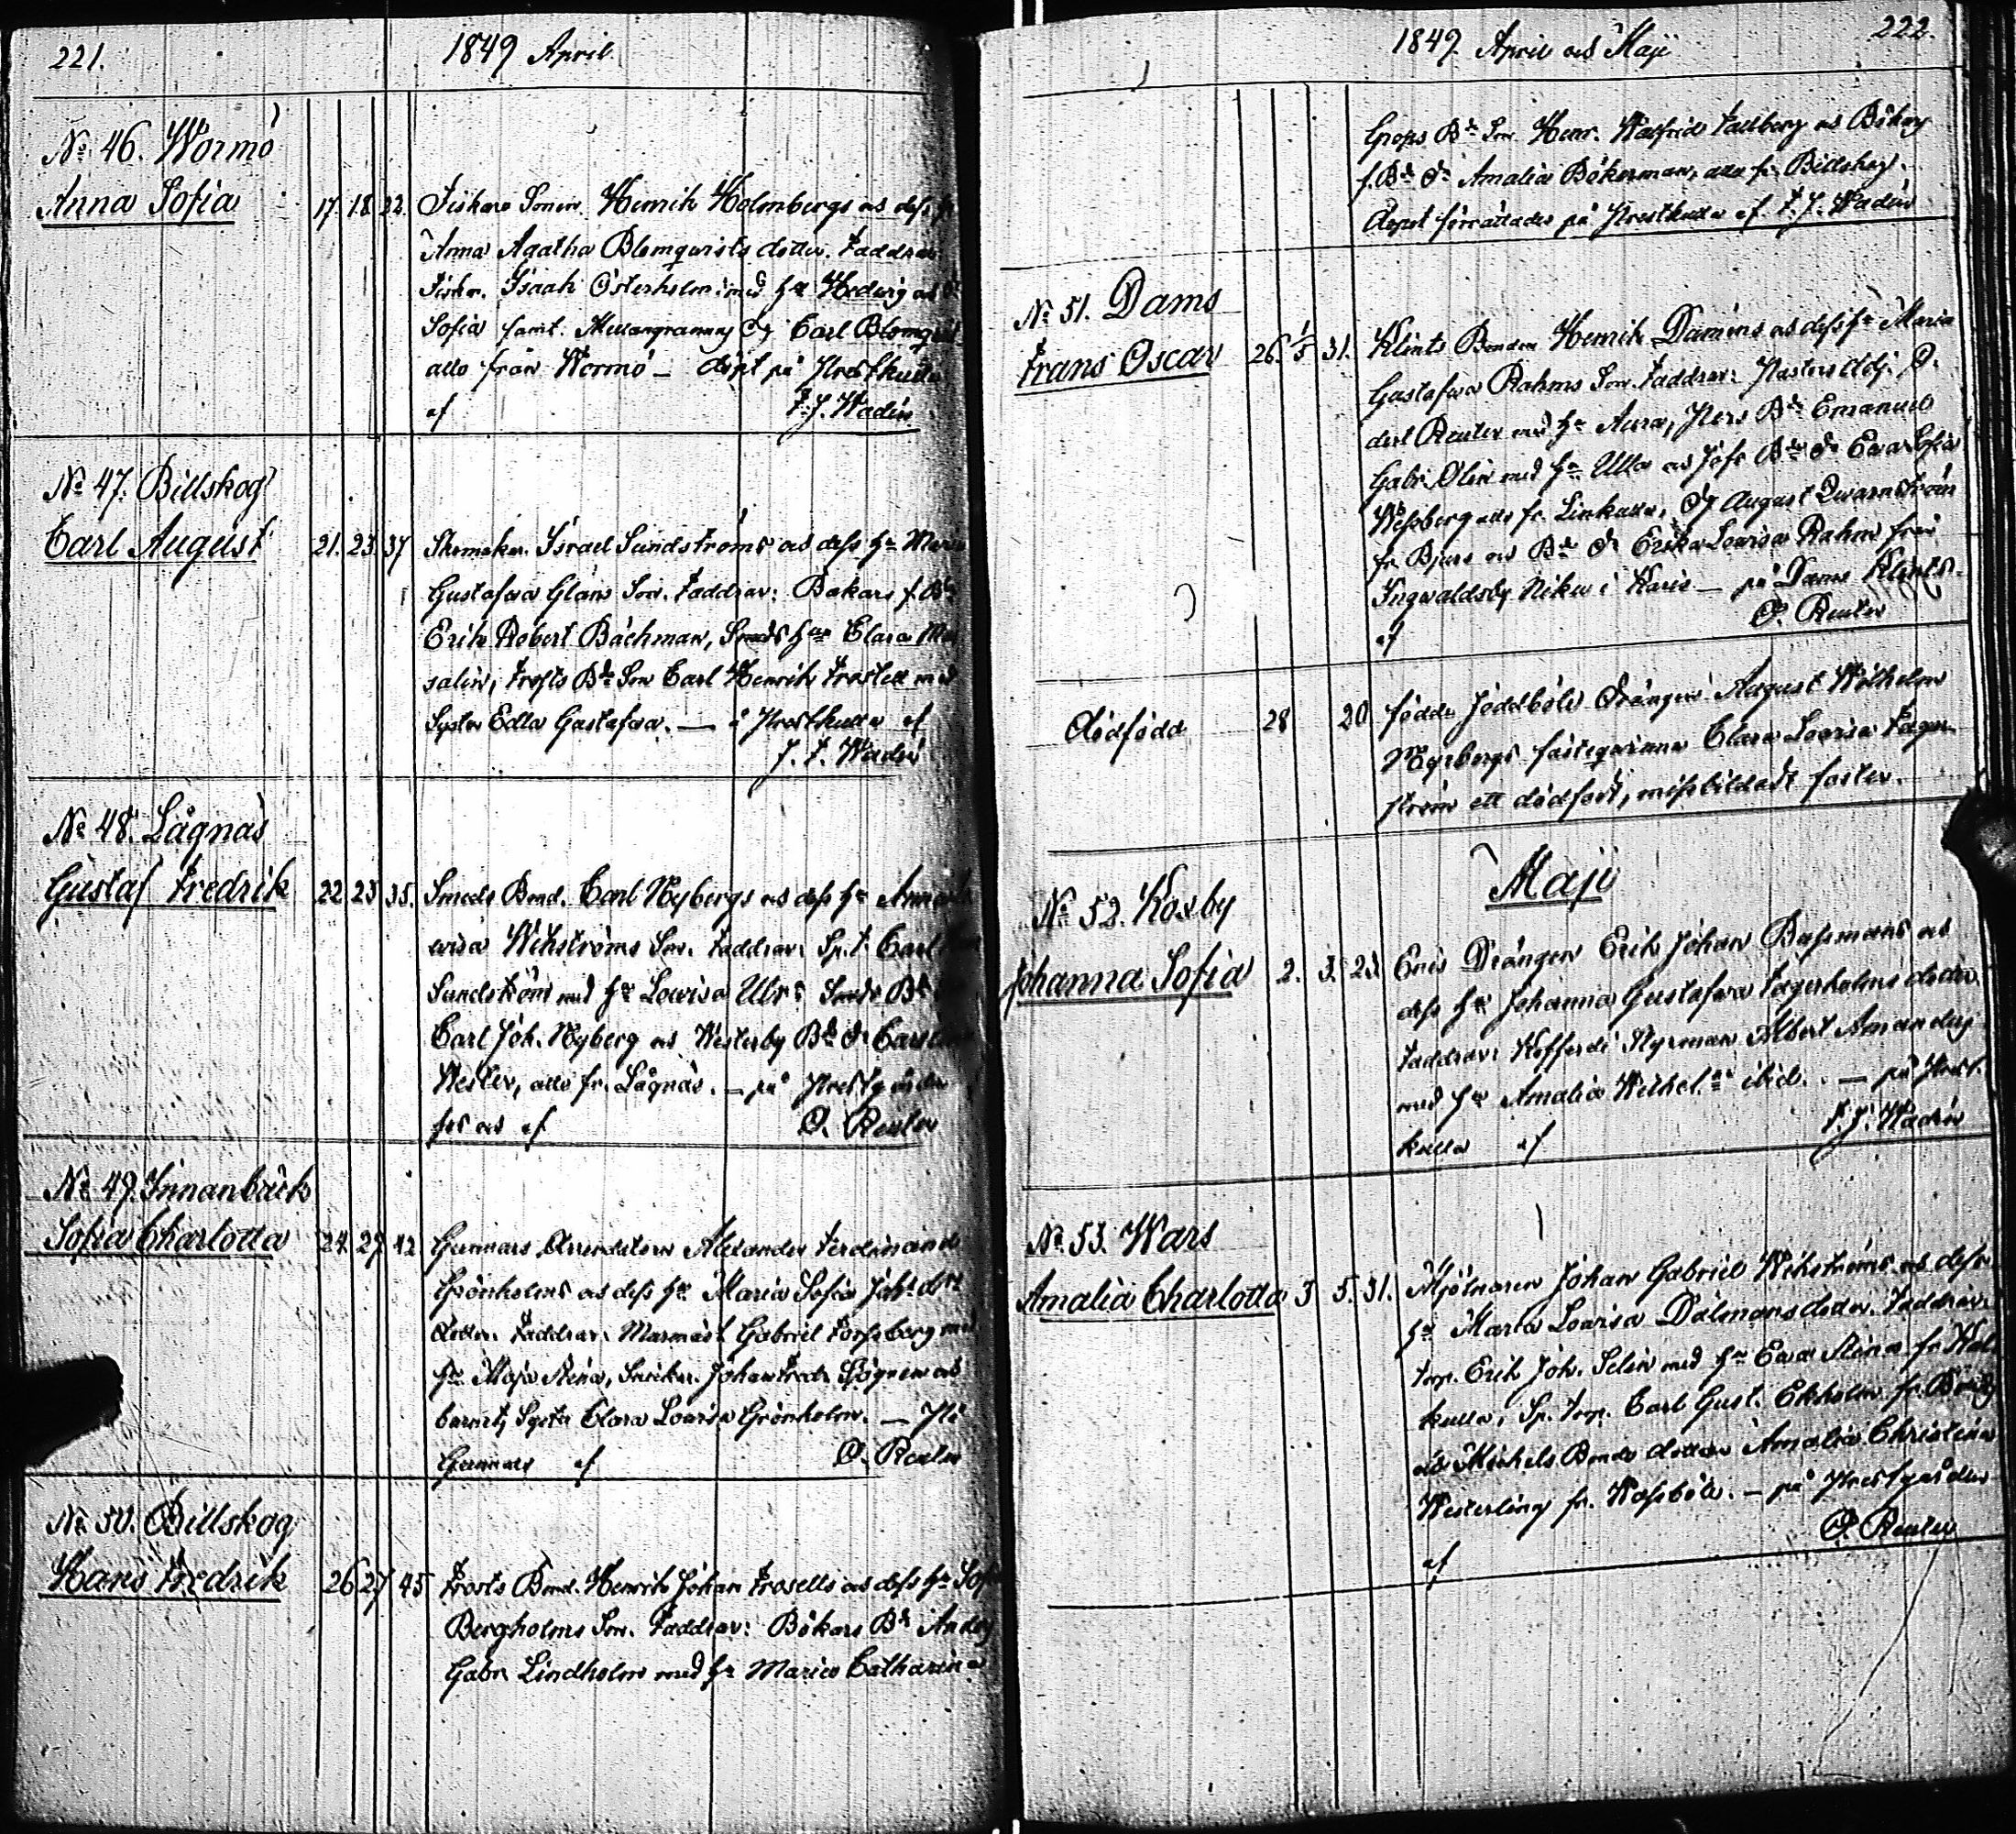 221.
1849 April.
No 46. Wormö
Anna Sofia 17. 18. 22. Fiskare Sonen Henrik Holmbergs och dess h
Anna Agatha Blomqvists dotter. Faddrar
Fiskn. Isaak Österholm med h Hedwig och
Sofia samt Carl Blomqvist
alla från Wormö — döpt på Prestkulla
af F. J. Wadén
No 47. Billskog
Carl August 21. 23. 37 Skomakn. Israel Sundströms och dess hu Maria
Gustafva Glans Son. Faddrar: Bakars f. Bd
Erik Robert Bäckman, Smeds hu Clara
salin, Frosts Bde Son Carl Henrik Frostell med
Syster Edla Gustafva. — å Prestkulla af
J. F. Wadén
No 48. Lågnäs
Gustaf Fredrik 22 23 35. Smeds Bond. Carl Nybergs och dess hu Anna
wisa Wikströms Son. Faddrar: Sp. t. Carl
Sundström med hu Lowisa Ulr: Smeds Bd
Carl Joh. Nyberg och Westerby Bd dr Carolina
Wesler, alla fr. Lågnäs. — på Prestgården
af O. Reuter
No 49. Innanbäck
Sofia Charlotta 24. 27. 42 Gunnars Arrendatorn Alexander Ferdinand
Grönholms och dess hu Maria Sofia Joh:
dotter. Faddrar: Gabriel Forssberg med
hu Maja Stina, Snickn. Johan Fredr. Sjögren och
barnets Syster Clara Lovisa Grönholm. — På
Gunnars af O. Reuter
No 50. Billskog
Hans Fredrik 26 27 45 Frosts Bond. Henrik Johan Frosells och dess hu Sof
Bergholms Son. Faddrar: Bökars Bd Anders
Gabr. Lindholm med hu Maria Catharina
1849. April och Maji
222.
Grops Bde Son Henr. Walfrid Fallberg och Bökars
f. Bde dr Amalia Bökerman, alla fr. Billskog.
Dopet förrättades på Prestkulla af F. J. Wadén
No 51. Dams
Frans Oscar 26. 1/5 31. Klints Bonden Henrik Daméns och dess hu Maria
Gustafva Rahms Son. Faddrar: Pastors Adj. O.
Reuter med hu Aura, Pers Bde Emanuel
Gabr. Olin med hu Ulla och Jofs Bde dr Eva Sofia
Wessberg alla fr. Linkulla, Dg August Qvarnström
fr. Bjurs och Bde dr Erika Lovisa Rahm från
Ingvaldsby Niku i Karis — på Dams Klints
af O. Reuter
dödfödd 28 20 födde Joddböle Drängen August Wilhelm
Myrbergs fästeqvinna Clara Lovisa Fager
ström ett dödfödt, missbildadt foster.
Maji
No 52. Koxby
Johanna Sofia 2. 3. 23. Enis Drängen Erik Johan Bassmans och
dess hu Johanna Gustafva Fagerholms dotter.
Faddrar: Kofferdi Styrman Albert Amandus
med hu Amalia Wilhel:na ibid. — på Prest
kulla af F. J. Wadén
No 53. Wars
Amalia Charlotta 3 5. 31. Mjölnaren Johan Gabriel Wikströms och dess
hu Maria Lovisa Dalmans dotter. Faddrar:
torp. Erik Joh. Selin med hu Eva Stina fr
kulla, Sp. torp. Carl Gust. Ekholm fr.
och Mickels Bonde dotter Amalia Christina
Westerling fr. Wassböle. — på Prestgården
af O. Reuter